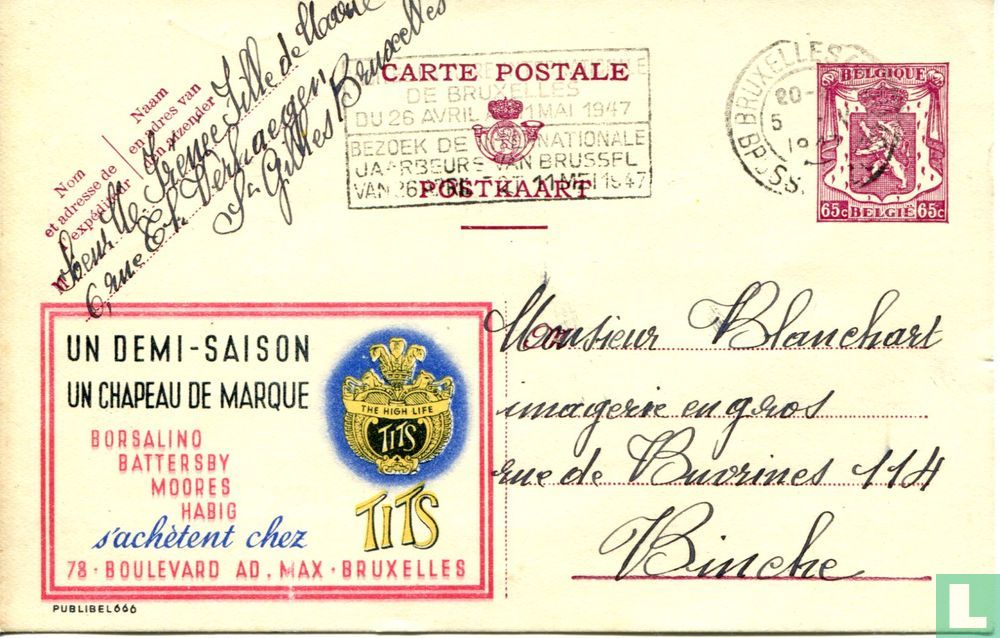 Nom
et adresse de
l'expéditeur
Naam
en adres van
den afzender
Irenee Fille de
6, rue Et. Verhaegen
St Gilles Bruxelles
CARTE POSTALE
POSTKAART
DE BRUXELLES
DU 26 AVRIL 11 MAI 1947
BEZOEK DE NATIONALE
JAARBEURS VAN BRUSSEL
VAN 26 11 MEI 1947
BRUXELLES
20-
5
19
BRUSS
BELGIQUE
65c BELGIË 65c
UN DEMI-SAISON
UN CHAPEAU DE MARQUE
BORSALINO
BATTERSBY
MOORES
HABIG
s'achètent chez
THE HIGH LIFE
TITS
TITS
78 · BOULEVARD AD. MAX · BRUXELLES
PUBLIBEL 666
Monsieur Blanchart
imagerie en gros
rue de Buvrines 114
Binche
L